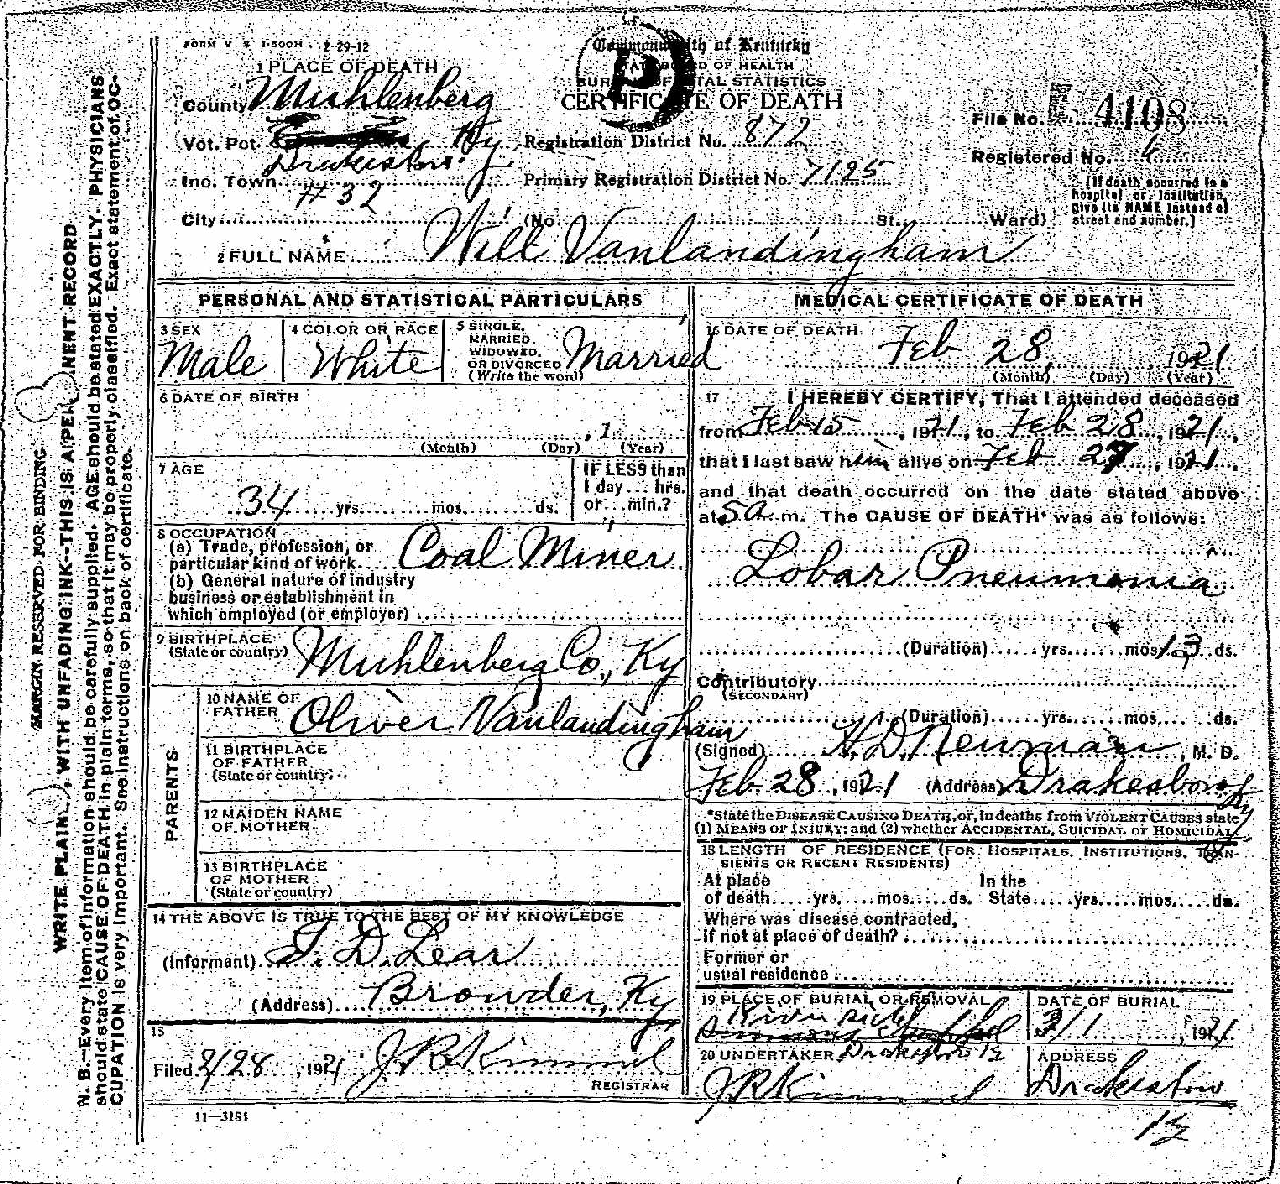 FORM V. S. 1-500M. 2-29-12
Commonwealth of Kentucky
STATE BOARD OF HEALTH
BUREAU OF VITAL STATISTICS
CERTIFICATE OF DEATH
1 PLACE OF DEATH
County Muhlenberg
Vot. Pct. Ky
Inc. Town Drakesboro
# 32
City (No. St. Ward)
Registration District No. 872
Primary Registration District No. 7125
File No. 4108
Registered No.
(If death occurred in a
hospital or institution,
give its NAME instead of
street and number.)
2 FULL NAME Will Vanlandingham
PERSONAL AND STATISTICAL PARTICULARS
3 SEX
Male
4 COLOR OR RACE
White
5 SINGLE,
MARRIED,
WIDOWED,
OR DIVORCED
(Write the word)
Married
6 DATE OF BIRTH
, 1
(Month) (Day) (Year)
7 AGE
34 yrs. mos. ds.
IF LESS than
1 day ... hrs.
or ... min.?
8 OCCUPATION
(a) Trade, profession, or
particular kind of work Coal Miner
(b) General nature of industry
business or establishment in
which employed (or employer)
9 BIRTHPLACE
(State or country) Muhlenberg Co., Ky
PARENTS
10 NAME OF
FATHER Oliver Vanlandingham
11 BIRTHPLACE
OF FATHER
(State or country)
12 MAIDEN NAME
OF MOTHER
13 BIRTHPLACE
OF MOTHER
(State or country)
14 THE ABOVE IS TRUE TO THE BEST OF MY KNOWLEDGE
(Informant) T. D. Lear
(Address) Browder, Ky
15
Filed 2/28, 1921 J.R. Kimmel
REGISTRAR
11—3184
MEDICAL CERTIFICATE OF DEATH
16 DATE OF DEATH
Feb 28, 1921
(Month) (Day) (Year)
17 I HEREBY CERTIFY, That I attended deceased
from Feb 15, 1921, to Feb 28, 1921,
that I last saw him alive on Feb 27, 1921
and that death occurred on the date stated above
at 5 a. m. The CAUSE OF DEATH* was as follows:
Lobar Pneumonia
(Duration) yrs. mos. 13 ds.
Contributory
(SECONDARY)
(Duration) yrs. mos. ds.
(Signed) H. D. Newman, M. D.
Feb 28, 1921 (Address) Drakesboro Ky
*State the DISEASE CAUSING DEATH, or, in deaths from VIOLENT CAUSES state
(1) MEANS OF INJURY; and (2) whether ACCIDENTAL, SUICIDAL or HOMICIDAL
18 LENGTH OF RESIDENCE (FOR HOSPITALS, INSTITUTIONS, TRAN-
SIENTS OR RECENT RESIDENTS)
At place In the
of death yrs. mos. ds. State yrs. mos. ds.
Where was disease contracted,
if not at place of death?
Former or
usual residence
19 PLACE OF BURIAL OR REMOVAL
River side
DATE OF BURIAL
3/1, 1921
20 UNDERTAKER Drakesboro Ky
J R Kimmel
ADDRESS
Drakesboro
Ky
MARGIN RESERVED FOR BINDING
WRITE PLAINLY, WITH UNFADING INK—THIS IS A PERMANENT RECORD
N. B.—Every item of information should be carefully supplied. AGE should be stated EXACTLY. PHYSICIANS
should state CAUSE OF DEATH in plain terms, so that it may be properly classified. Exact statement of OC-
CUPATION is very important. See instructions on back of certificate.